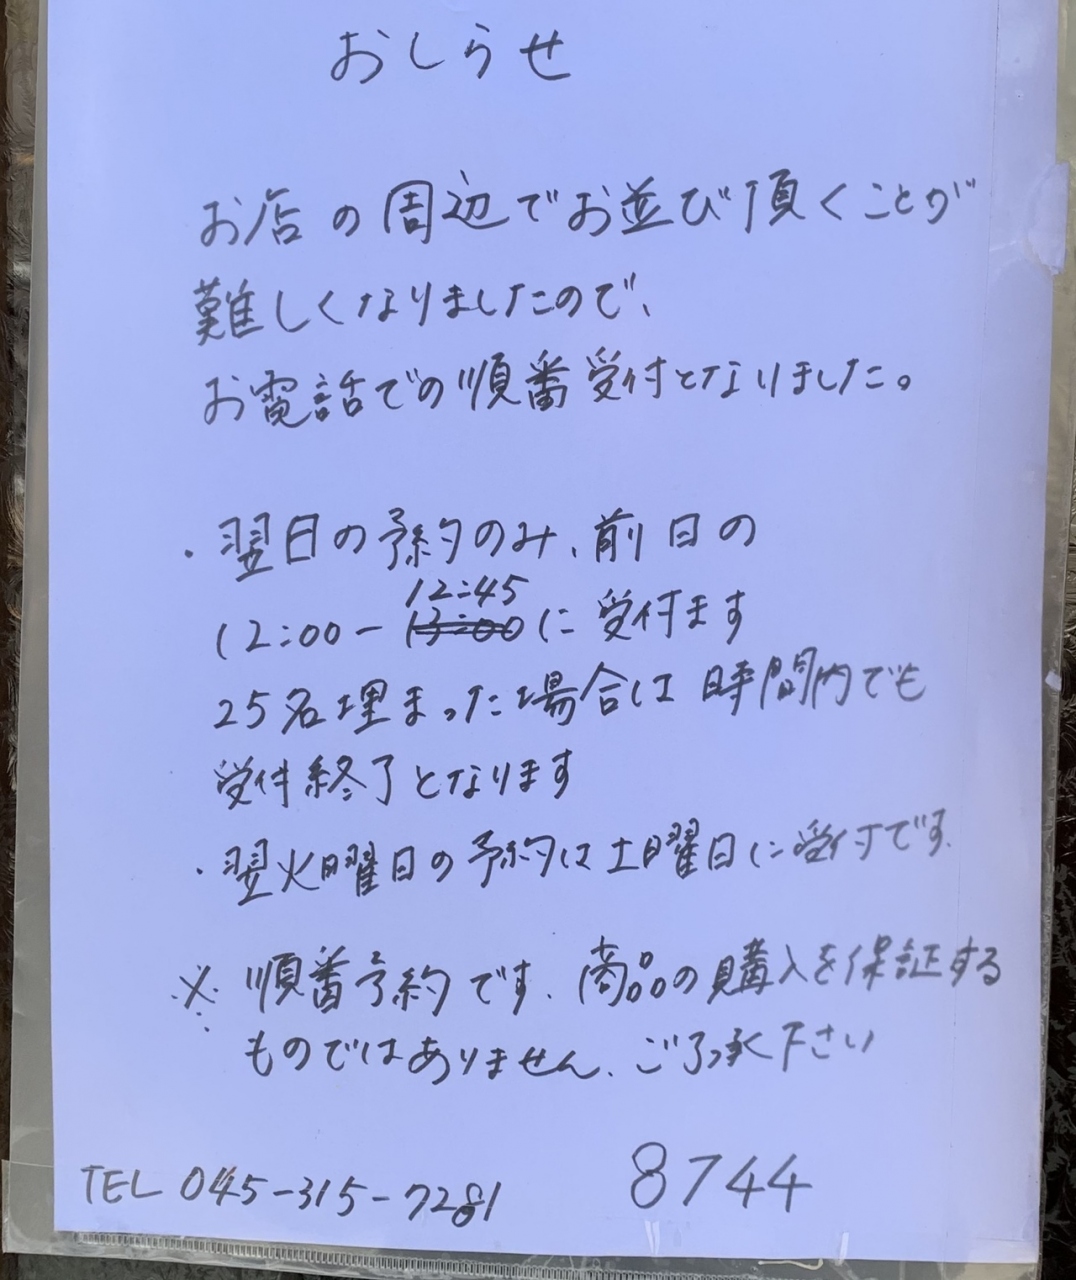 おしらせ
お店の周辺でお並び頂くことが
難しくなりましたので、
お電話での順番受付となりました。
・翌日の予約のみ、前日の
12:45
12:00-13:00に受付ます
25名埋まった場合は時間内でも
受付終了となります
・翌火曜日の予約は土曜日に受付です.
※ 順番予約です.商品の購入を保証する
ものではありません.ご了承下さい
TEL 045-315-7281
8744